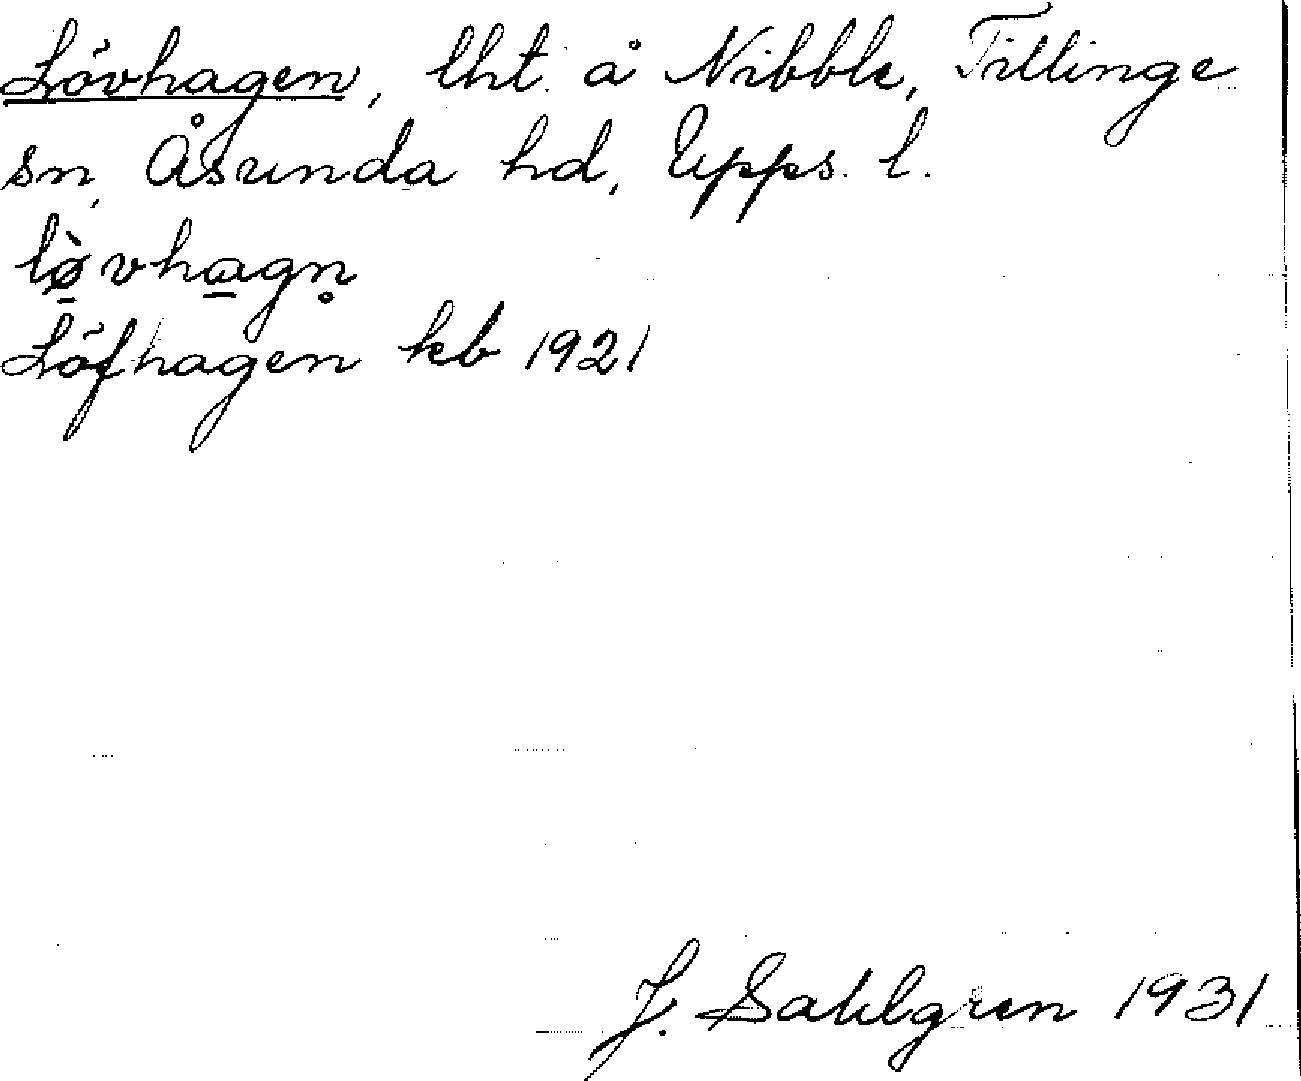 Lövhagen, lht. å Nibble, Tillinge
sn, Åsunda hd, Upps. l.
lø̱̀vha̱gn̥
Löfhagen kb 1921
J. Sahlgren 1931